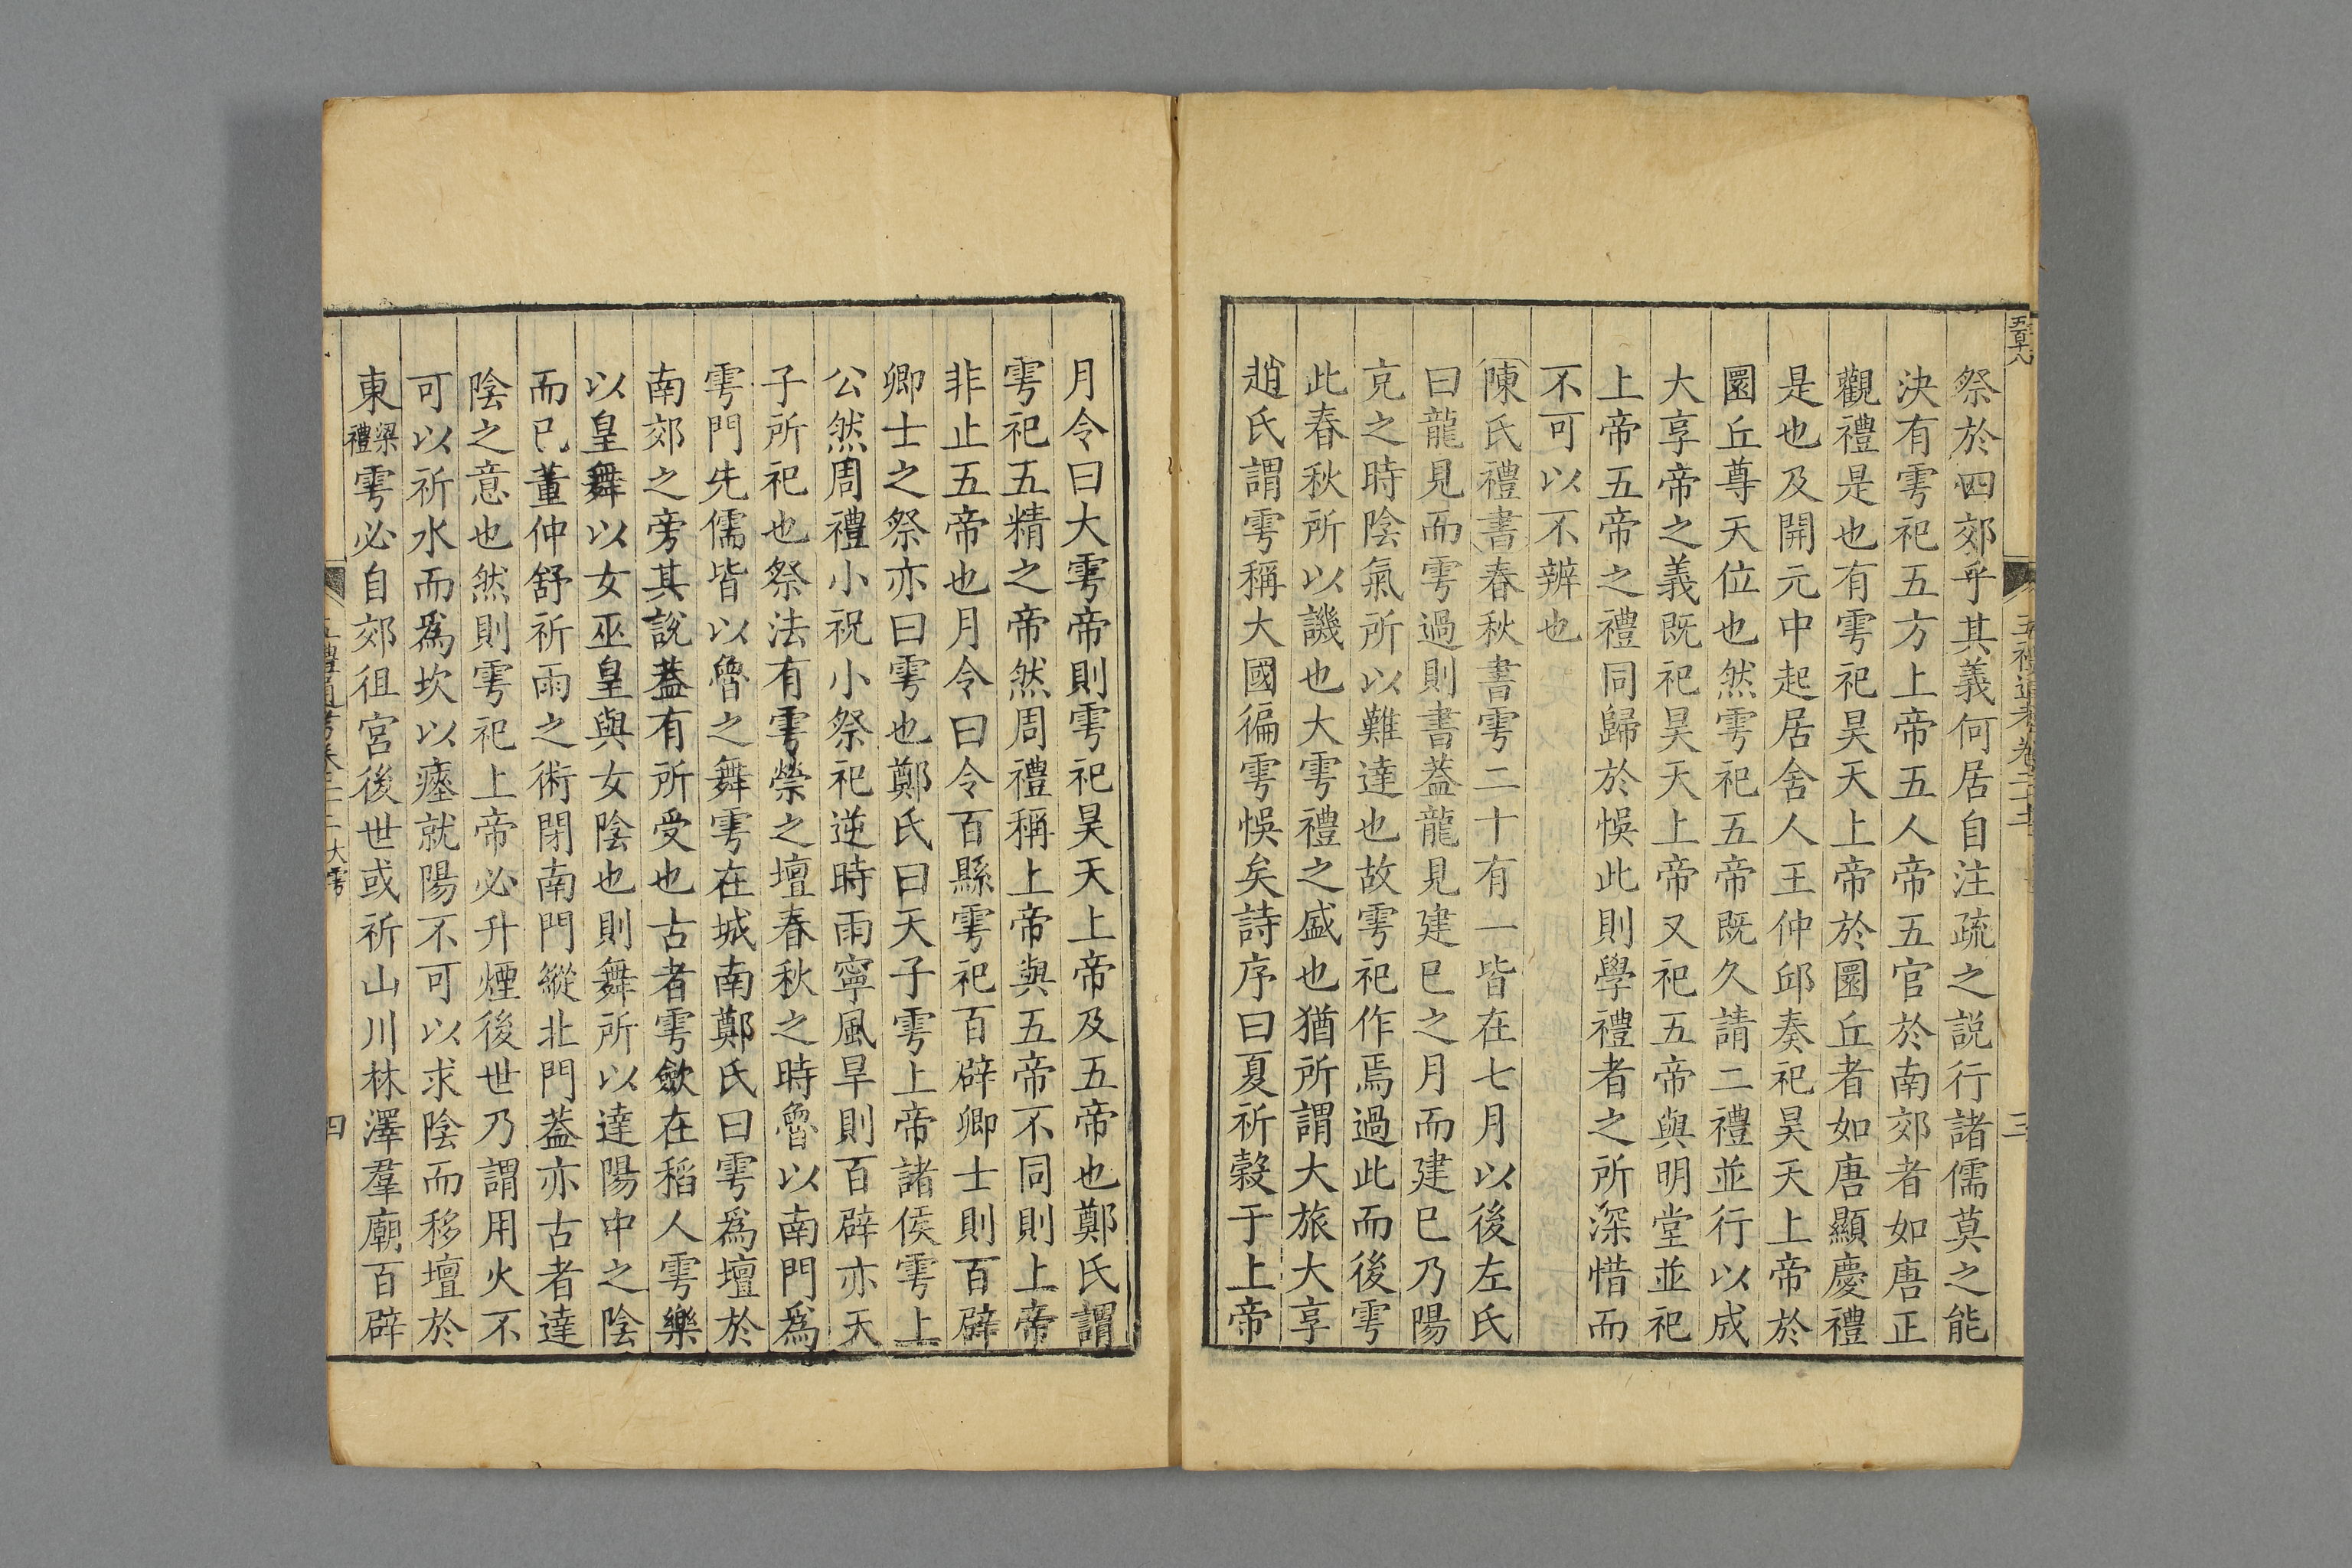 五百十八
祭於四郊乎其義何居自注疏之説行諸儒莫之能
決有雩祀五方上帝五人帝五官於南郊者如唐正
觀禮是也有雩祀昊天上帝於圜丘者如唐顯慶禮
是也及開元中起居舍人王仲邱奏祀昊天上帝於
圜丘尊天位也然雩祀五帝既久請二禮並行以成
大享帝之義既祀昊天上帝又祀五帝與明堂並祀
上帝五帝之禮同歸於悞此則學禮者之所深惜而
不可以不辨也
陳氏禮書春秋書雩二十有一皆在七月以後左氏
曰龍見而雩過則書葢龍見建巳之月而建巳乃陽
亢之時陰氣所以難達也故雩祀作焉過此而後雩
此春秋所以譏也大雩禮之盛也猶所謂大旅大享
趙氏謂雩稱大國徧雩悞矣詩序曰夏祈穀于上帝
月令曰大雩帝則雩祀昊天上帝及五帝也鄭氏謂
雩祀五精之帝然周禮稱上帝與五帝不同則上帝
非止五帝也月令曰令百縣雩祀百辟卿士則百辟
卿士之祭亦曰雩也鄭氏曰天子雩上帝諸侯雩上
公然周禮小祝小祭祀逆時雨寧風旱則百辟亦天
子所祀也祭法有雩禜之壇春秋之時魯以南門爲
雩門先儒皆以魯之舞雩在城南鄭氏曰雩爲壇於
南郊之旁其說葢有所受也古者雩斂在稻人雩樂
以皇舞以女巫皇與女陰也則舞所以達陽中之陰
而已董仲舒祈雨之術閉南門縱北門葢亦古者達
陰之意也然則雩祀上帝必升煙後世乃謂用火不
可以祈水而爲坎以瘞就陽不可以求陰而移壇於
東梁禮雩必自郊徂宮後世或祈山川林澤羣廟百辟
大雩
四